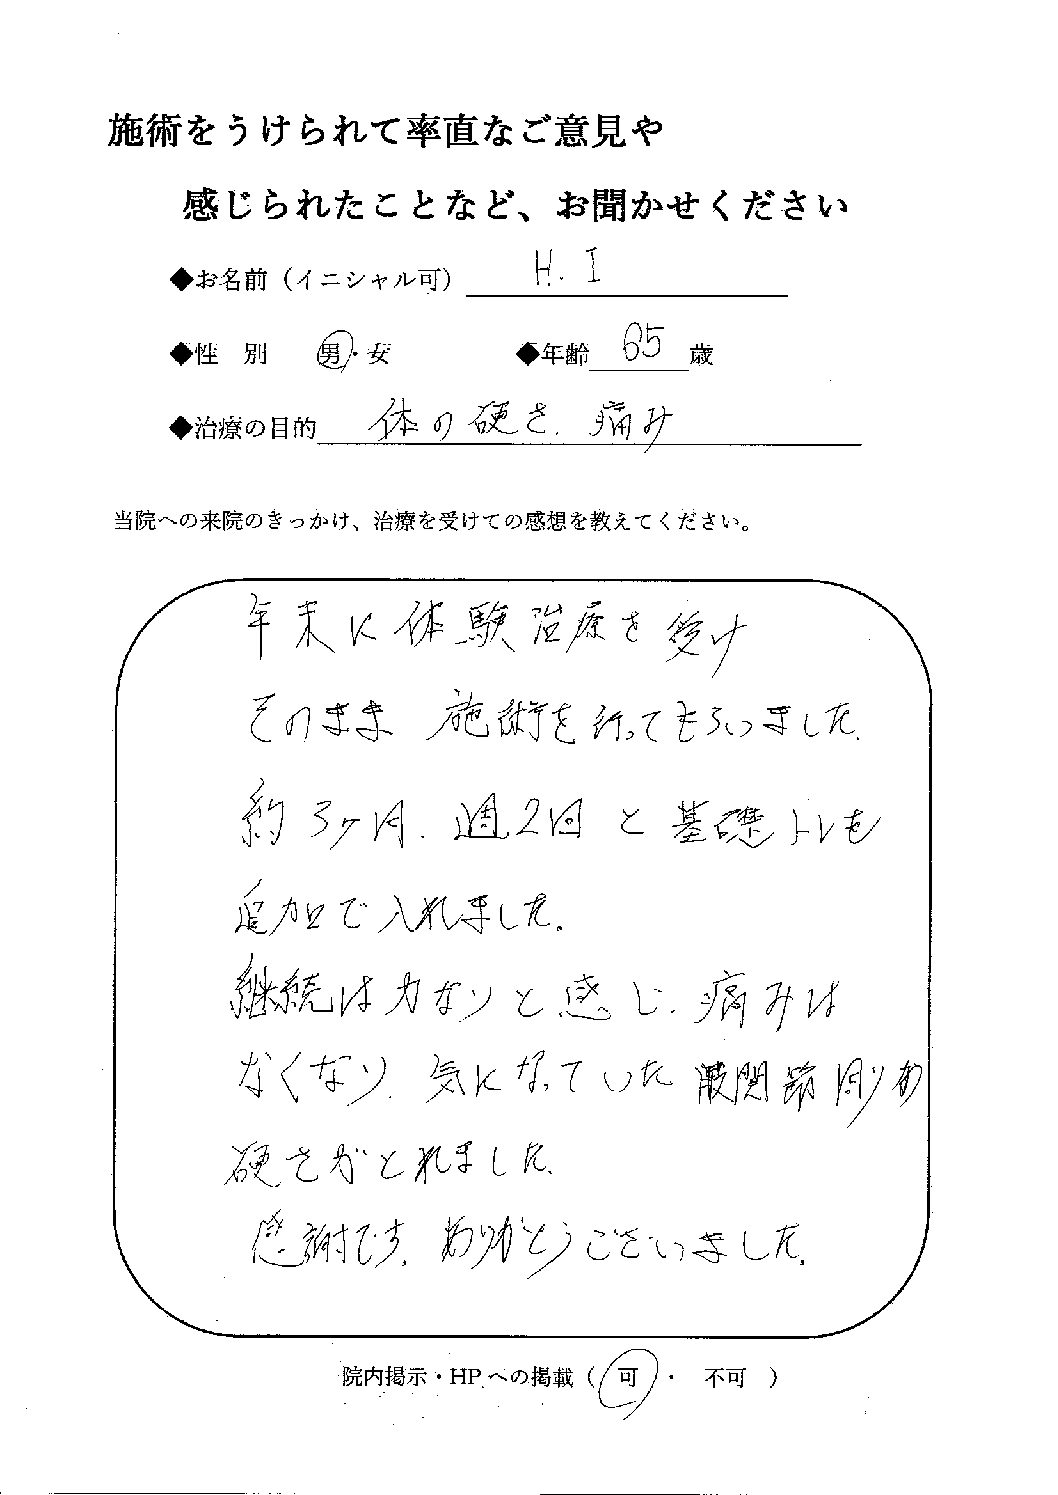 施術をうけられて率直なご意見や
感じられたことなど、お聞かせください
◆お名前（イニシャル可） H. I
◆性　別　男・女　◆年齢 65 歳
◆治療の目的 体の硬さ. 痛み
当院への来院のきっかけ、治療を受けての感想を教えてください。
年末に体験治療を受け
そのまま 施術を行ってもらいました.
約3ヶ月. 週2回と基礎トレを
追加で入れました.
継続は力なりと感じ. 痛みは
なくなり. 気になっていた股関節周りの
硬さがとれました.
感謝です. ありがとうございました.
院内掲示・HPへの掲載（ 可 ・ 不可 ）